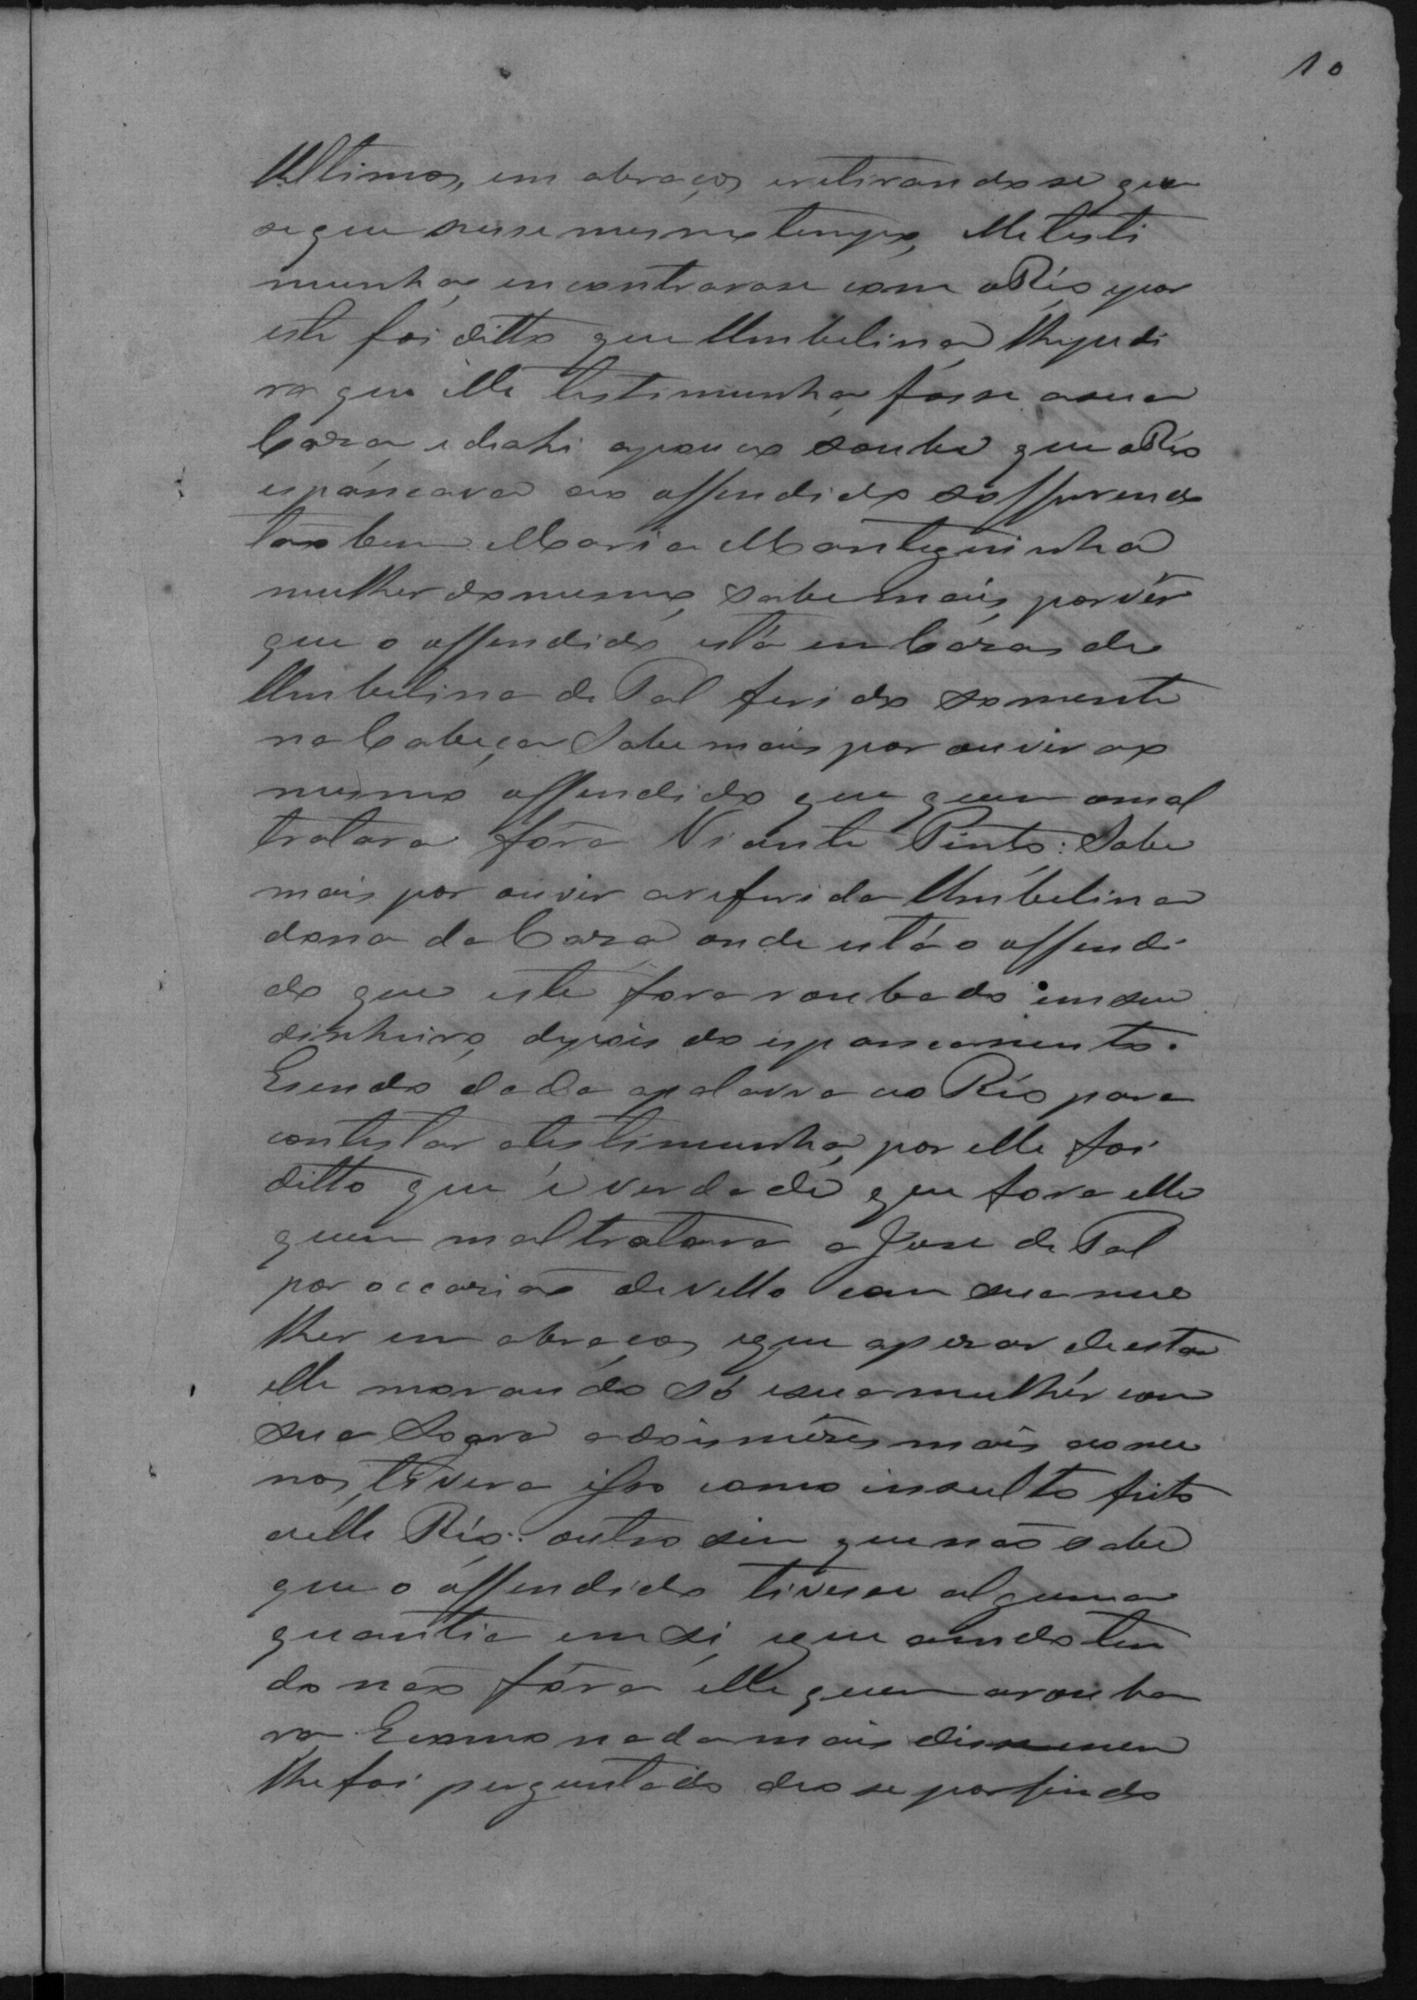 10
Ultimos, em abraços eretirandose que
segue nesse mesmo tempo, elle testi
munha, encontrarase com o Réo epor
este foi ditto que Umbelina, lhepedi
ra que elle testimunha fosse asua
Caza, edrahi apouco soube que o Réo
espancava ao offendido soffrendo
tão bem Maria Manteguinha
mulher domesmo, sabe mais, porvêr
que o offendido está em Cazas de
Umbelina de Tal ferido somente
na Cabeça Sabe mais por ouvir ao
mesmo offendido que quem omal
tratara fôra Vicente Pinto: Sabe
mais por ouvir areferida Umbelina
dona da Caza onde está o offendi-
do que este fora roubado em seu
dinheiro, depois do espancamento.
Esendo dada apalavra ao Réo para
contestar atestimunha, por elle foi
ditto que é verdade que fora elle
quem maltratara a Jose de Tal
por occazião devello com sua mu
lher em abraços, eque apezar deestar
elle morando só esua mulhér com
sua Sogra adois mêzes mais ou me
nos, tivera isso como insulto feito
aelle Réo: outro sim que não sabe
que o offendido tivesse alguma
quantia em si, eque ainda ten
do não fôra elle quem arouba
ra Ecomo nada mais disse nem
lhe foi perguntado deo se por findo